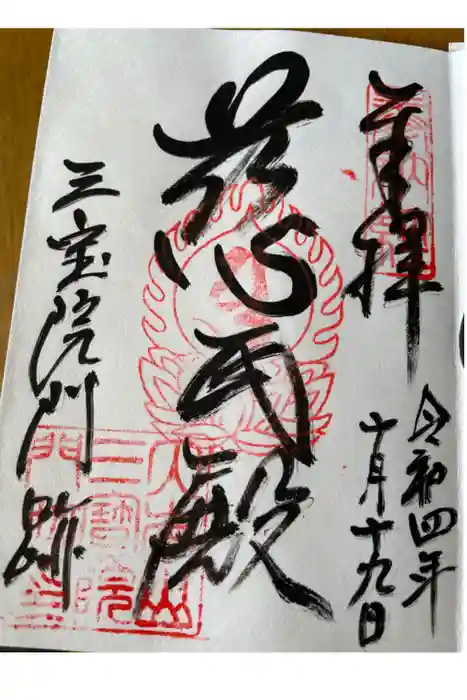 奉拝
令和四年
十月十九日
慈氏殿
三宝院門跡
三寶院